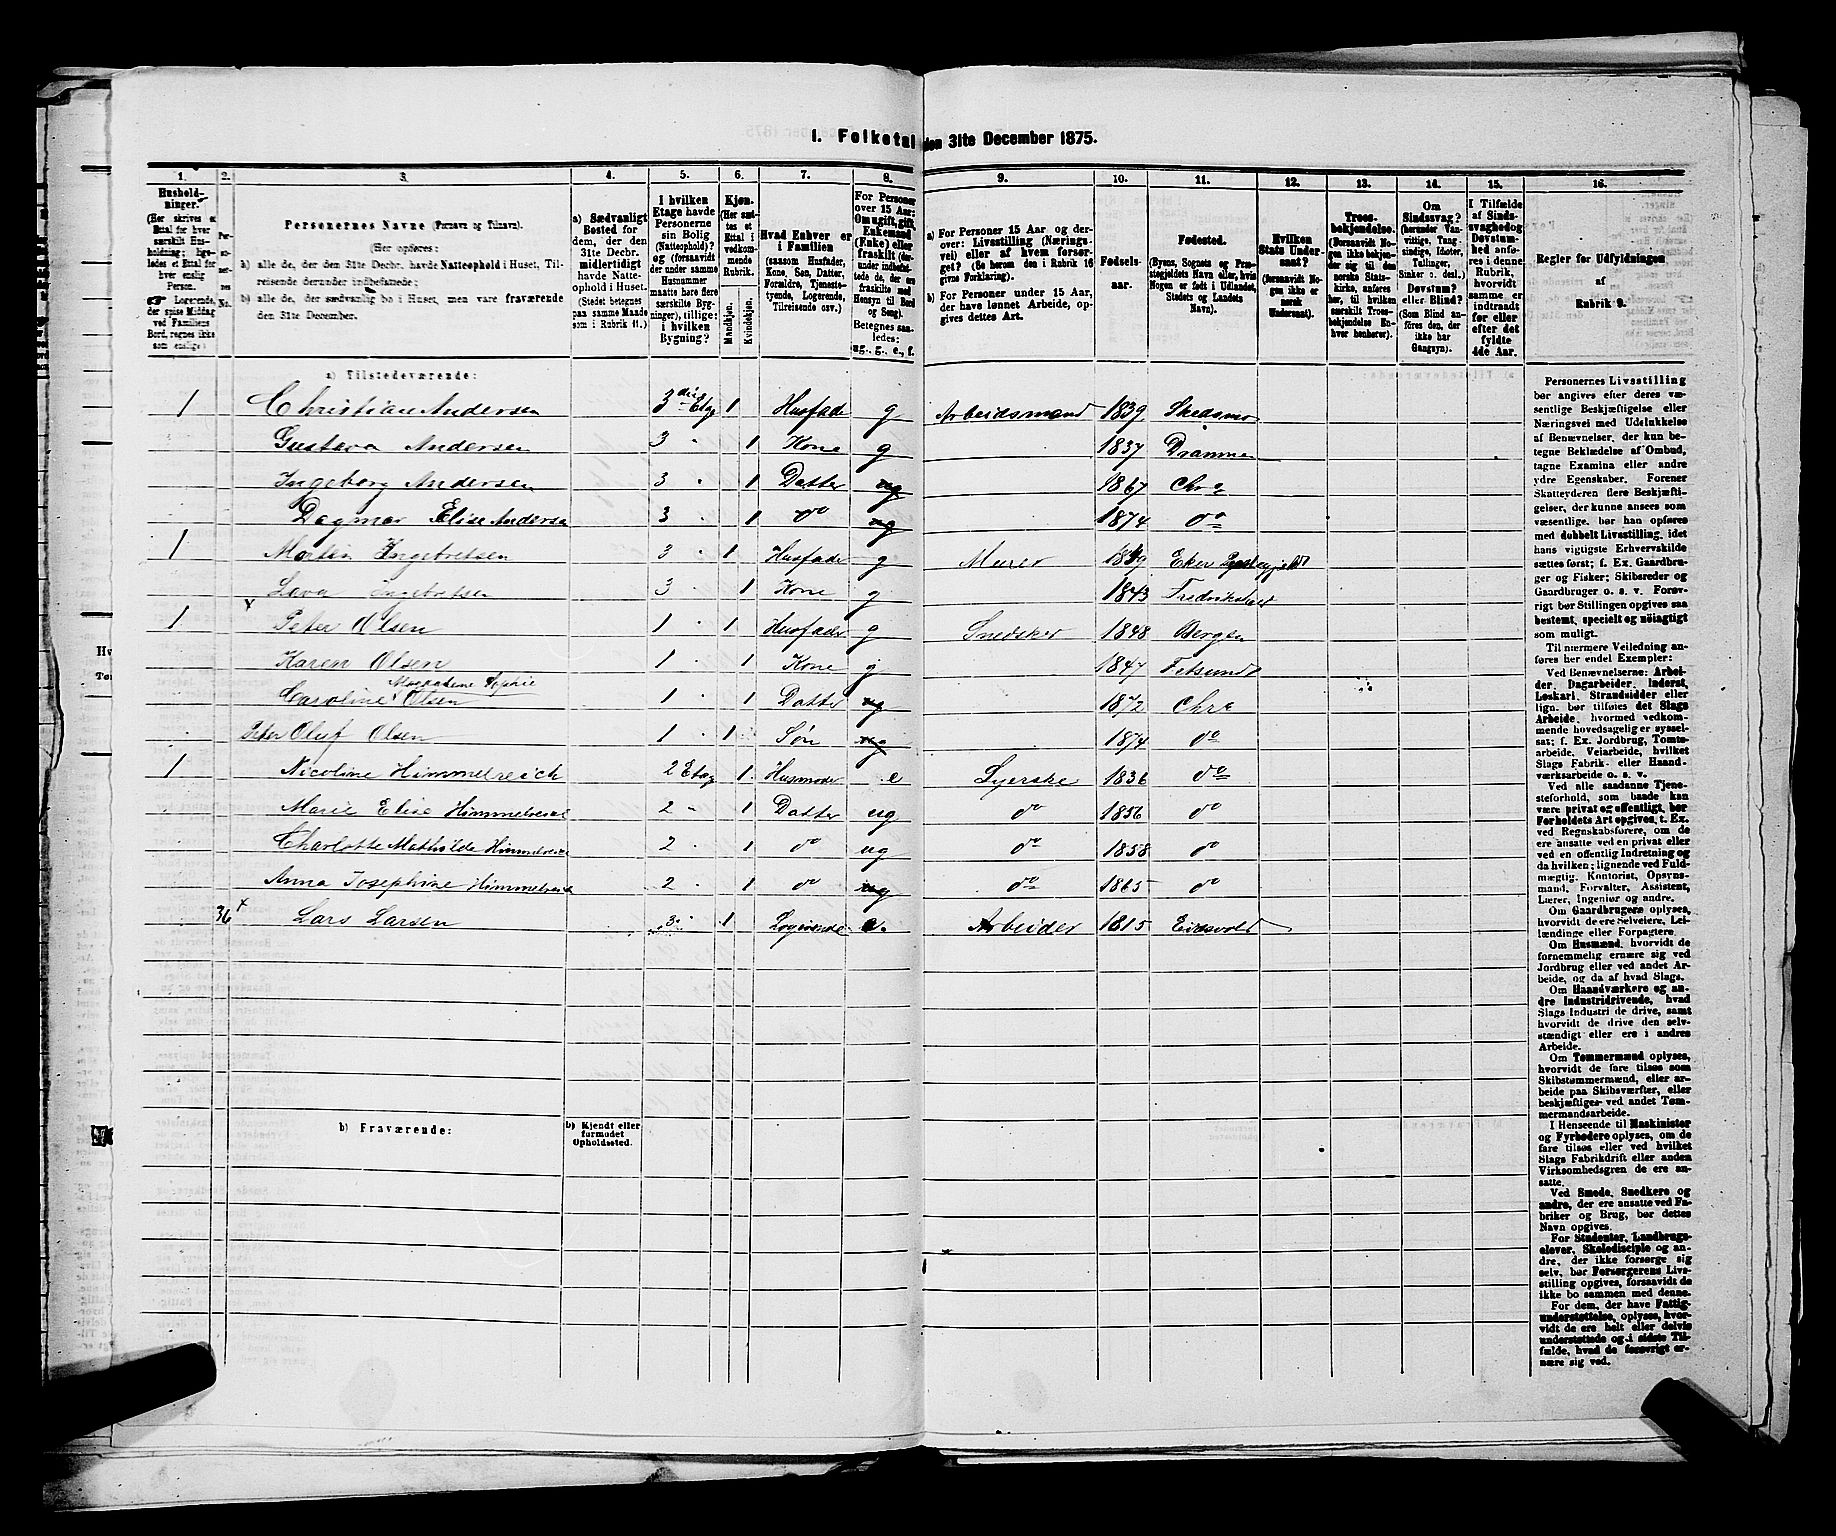 1. Folketal den 31te December 1875.
1. 2. 3. 4. 5. 6. 7. 8. 9. 10. 11. 12. 13. 14. 15. 16.
Hushold-
ninger.
(Her skrives et
Ettal for hver
særskilt Hus-
holdning; lige-
ledes et Ettal for
hver enslig
Person.
Logerende,
der spise Middag
ved Familiens
Bord, regnes ikke
som enslige.)
Personernes Navne (Fornavn og Tilnavn).
(Her opføres:
a) alle de, der den 31te Decbr. havde Natteophold i Huset, Til-
reisende derunder indbefattede;
b) alle de, der sædvanlig bo i Huset, men vare fraværende
den 31te December.
a) Sædvanligt
Bosted for
dem, der den
31te Decbr.
midlertidigt
havde Natte-
ophold i Huset.
(Stedet betegnes
paa samme Maade
som i Rubrik 11.)
I hvilken
Etage havde
Personerne
sin Bolig
(Natteophold)?
og (forsaavidt
der under samme
Husnummer
maatte høre flere
særskilte Byg-
ninger), tillige:
i hvilken
Bygning?
Kjøn.
(Her sæt-
tes et
Ettal i
vedkom-
mende
Rubrik.
Mandkjøn.
Kvindekjøn.
Hvad Enhver er
i Familien
(saasom Husfader,
Kone, Søn, Datter,
Forældre, Tjeneste-
tyende, Logerende,
Tilreisende osv.)
For Personer
over 15 Aar:
Om ugift, gift,
Enkemand
(Enke) eller
fraskilt
Betegnes saa-
ledes:
ug., g., e., f.
a) For Personer 15 Aar og der-
over: Livsstilling (Nærings-
vei) eller af hvem forsør-
get? (Se herom den i Rubrik 16
givne Forklaring).
b) For Personer under 15 Aar,
der have lønnet Arbeide, op-
gives dettes Art.
Fødsels-
aar.
Fødested.
(Byens, Sognets og Præ-
stegjeldets Navn eller, hvis
Nogen er født i Udlandet,
Stedets og Landets
Navn).
Hvilken
Stats Under-
saat?
(forsaavidt No-
gen ikke er
norsk
Undersaat).
Troes-
bekjendelse.
(Forsaavidt No-
gen ikke bekjen-
der sig til den
norske Stats-
kirke, anføres
her, til hvilken
særskilt Troes-
bekjendelse En-
hver henhører).
Om
Sindssvag?
(herunder Van-
vittige, Tung-
sindige, Idioter,
Tullinger,
Sinker o. desl.)
Døvstum?
eller Blind?
(Som Blind an-
føres den, der
ikke har
Gangsyn).
I Tilfælde
af Sinds-
svaghed og
Døvstum-
hed anfø-
res i denne
Rubrik,
hvorvidt
samme er
indtraadt
før eller
efter det
fyldte
4de Aar.
Regler for Udfyldningen
af
Rubrik 9.
a) Tilstedeværende:
1 Christian Andersen 3die Etage 1 Husfader g Arbeidsmand 1839 Skedsmo
Gustava Andersen 3 " 1 Kone g 1837 Drammen
Ingeborg Andersen 3 " 1 Datter ug 1867 Chra
Dagmar Elise Andersen 3 " 1 do ug 1874 do
1 Martin Ingebretsen 3 " 1 Husfader g Murer Eker Præstegjeld
Ingebretsen 3 " 1 Kone g 1843 Fredrikstad
1 x Peter Olsen 1 " 1 Husfader g Snedker 1848 Bergen
Karen Olsen 1 " 1 Kone g 1847 Fetsund
Caroline Magdalene Sophie Olsen 1 " 1 Datter ug 1872 Chra
Peter Oluf Olsen 1 " 1 Søn ug 1874 do
1 Nicoline Himmelreich 2 Etag 1 Husmoder e Syerske 1836 do
Marie Elise Himmelreich 2 " 1 Datter ug do 1856 do
Charlotte Mathilde Himmelreich 2 " 1 do ug do 1858 do
Anna Josephine Himmelreich 2 " 1 do ug do 1865 do
36 x Lars Larsen 3 " 1 Logerende e. Arbeider 1815 Eidsvold
b) Fraværende:
b) Kjendt eller
formodet
Opholdssted.
Personernes Livsstilling
bør angives efter deres væ-
sentlige Beskjæftigelse eller
Næringsvei med Udelukkelse
af Benævnelser, der kun be-
tegne Beklædelse af Ombud,
tagne Examina eller andre
ydre Egenskaber. Forener
Skatteyderen flere Beskjæfti-
gelser, der kunne ansees som
væsentlige, bør han opføres
med dobbelt Livsstilling, idet
hans vigtigste Erhvervskilde
sættes først; f. Ex. Gaardbru-
ger og Fisker; Skibsreder og
Gaardbruger o. s. v. Forøv-
rigt bør Stillingen opgives saa
bestemt, specielt og nøiagtigt
som muligt.
Til nærmere Veiledning an-
føres her endel Exempler:
Ved Benævnelserne: Arbei-
der, Dagarbeider, Inderst,
Løskarl, Strandsidder eller
lign. bør tilføies det Slags
Arbeide, hvormed vedkom-
mende hovedsagelig er syssel-
sat; f. Ex. Jordbrug, Tomte-
arbeide, Veiarbeide, hvilket
Slags Fabrik- eller Haand-
værksarbeide o. s. v.
Ved alle saadanne Tjene-
steforhold, som baade kan
være privat og offentligt, bør
Forholdets Art opgives, t. Ex.
ved Regnskabsførere, om de
ere ansatte ved en privat eller
ved en offentlig Indretning og
da hvilken; lignende ved Fuld-
mægtig, Kontorist, Opsyns-
mand, Forvalter, Assistent,
Lærer, Ingeniør og andre.
Om Gaardbrugere oplyses,
hvorvidt de ere Selveiere, Lei-
lændinge eller Forpagtere.
Om Husmænd, hvorvidt de
fornemmelig ernære sig ved
Jordbrug eller ved andet Ar-
beide, og da af hvad Slags.
Om Haandværkere og an-
dre Industridrivende, hvad
Slags Industri de drive, samt
hvorvidt de drive den selv-
stændigt eller ere i andres
Arbeide.
Om Tømmermænd oplyses,
hvorvidt de fare tilsøs som
Skibstømmermænd, eller ar-
beide paa Skibsværfter, eller
beskjæftiges ved andet Tøm-
mermandsarbeide.
I Henseende til Maskinister
og Fyrbødere oplyses, om de
fare tilsøs eller ved hvilket
Slags Fabrikdrift eller anden
Virksomhedsgren de ere an-
satte.
Ved Smede, Snedkere og
andre, der ere ansatte ved Fa-
briker og Brug, bør dettes
Navn opgives.
For Studenter, Landbrugs-
elever, Skoledisciple og an-
dre, der ikke forsørge sig
selv, bør Forsørgerens Livs-
stilling opgives, forsaavidt de
ikke bo sammen med denne.
For dem, der have Fattig-
understøttelse, oplyses, hvor-
vidt de ere helt eller delvis
understøttede og i sidste Til-
fælde, hvad de forøvrigt er-
nære sig ved.